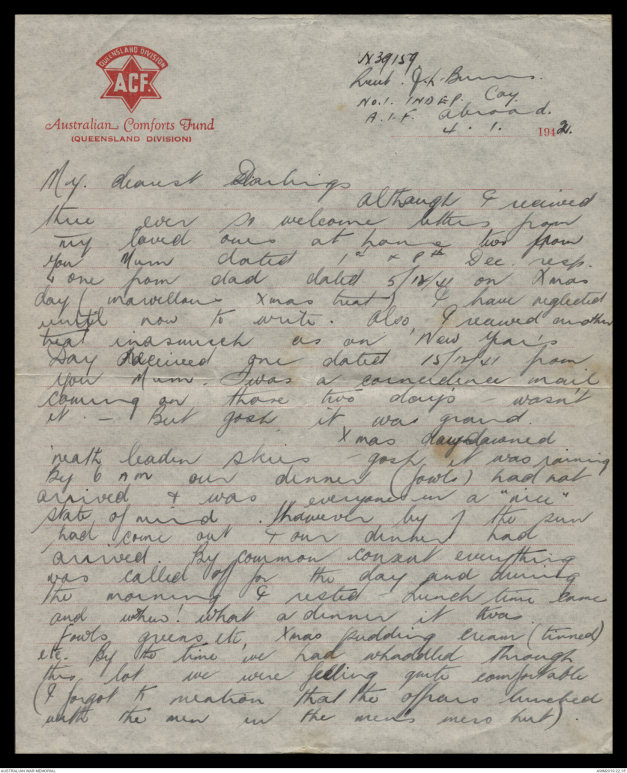 QUEENSLAND DIVISION
ACF.
Australian Comforts Fund
(QUEENSLAND DIVISION)
N39159
Lieut. J.L. Burns.
No.1. INDEP. Coy.
A.I.F. abroad.
4. 1. 1942.
My dearest Darlings
Although I received
three ever so welcome letters from
my loved ones at home two from
you Mum dated 1st & 8th Dec resp.
& one from dad dated 5/12/41 on Xmas
day (marvellous Xmas treat) I have neglected
until now to write. Also, I received another
treat inasmuch as on New Year's
Day Received one dated 15/12/41 from
you Mum. Twas a coincidence mail
coming on those two day's - wasn't
it. - But gosh it was grand.
Xmas day dawned
'neath leaden skies - gosh it was raining
By 6 AM our dinner (fowls) had not
arrived & was everyone in a "nice"
state of mind. However by 7 the sun
had come out & our dinner had
arrived. By common consent everything
was called off for the day and during
the morning I rested - Lunch time came
and whew! what a dinner it twas
Fowls, greens etc, Xmas pudding cream (tinned)
etc. By the time we had whaddled through
this lot we were feeling quite comfortable
(I forgot to mention that the officers lunched
with the men in the men's mess hut).
AUSTRALIAN WAR MEMORIAL